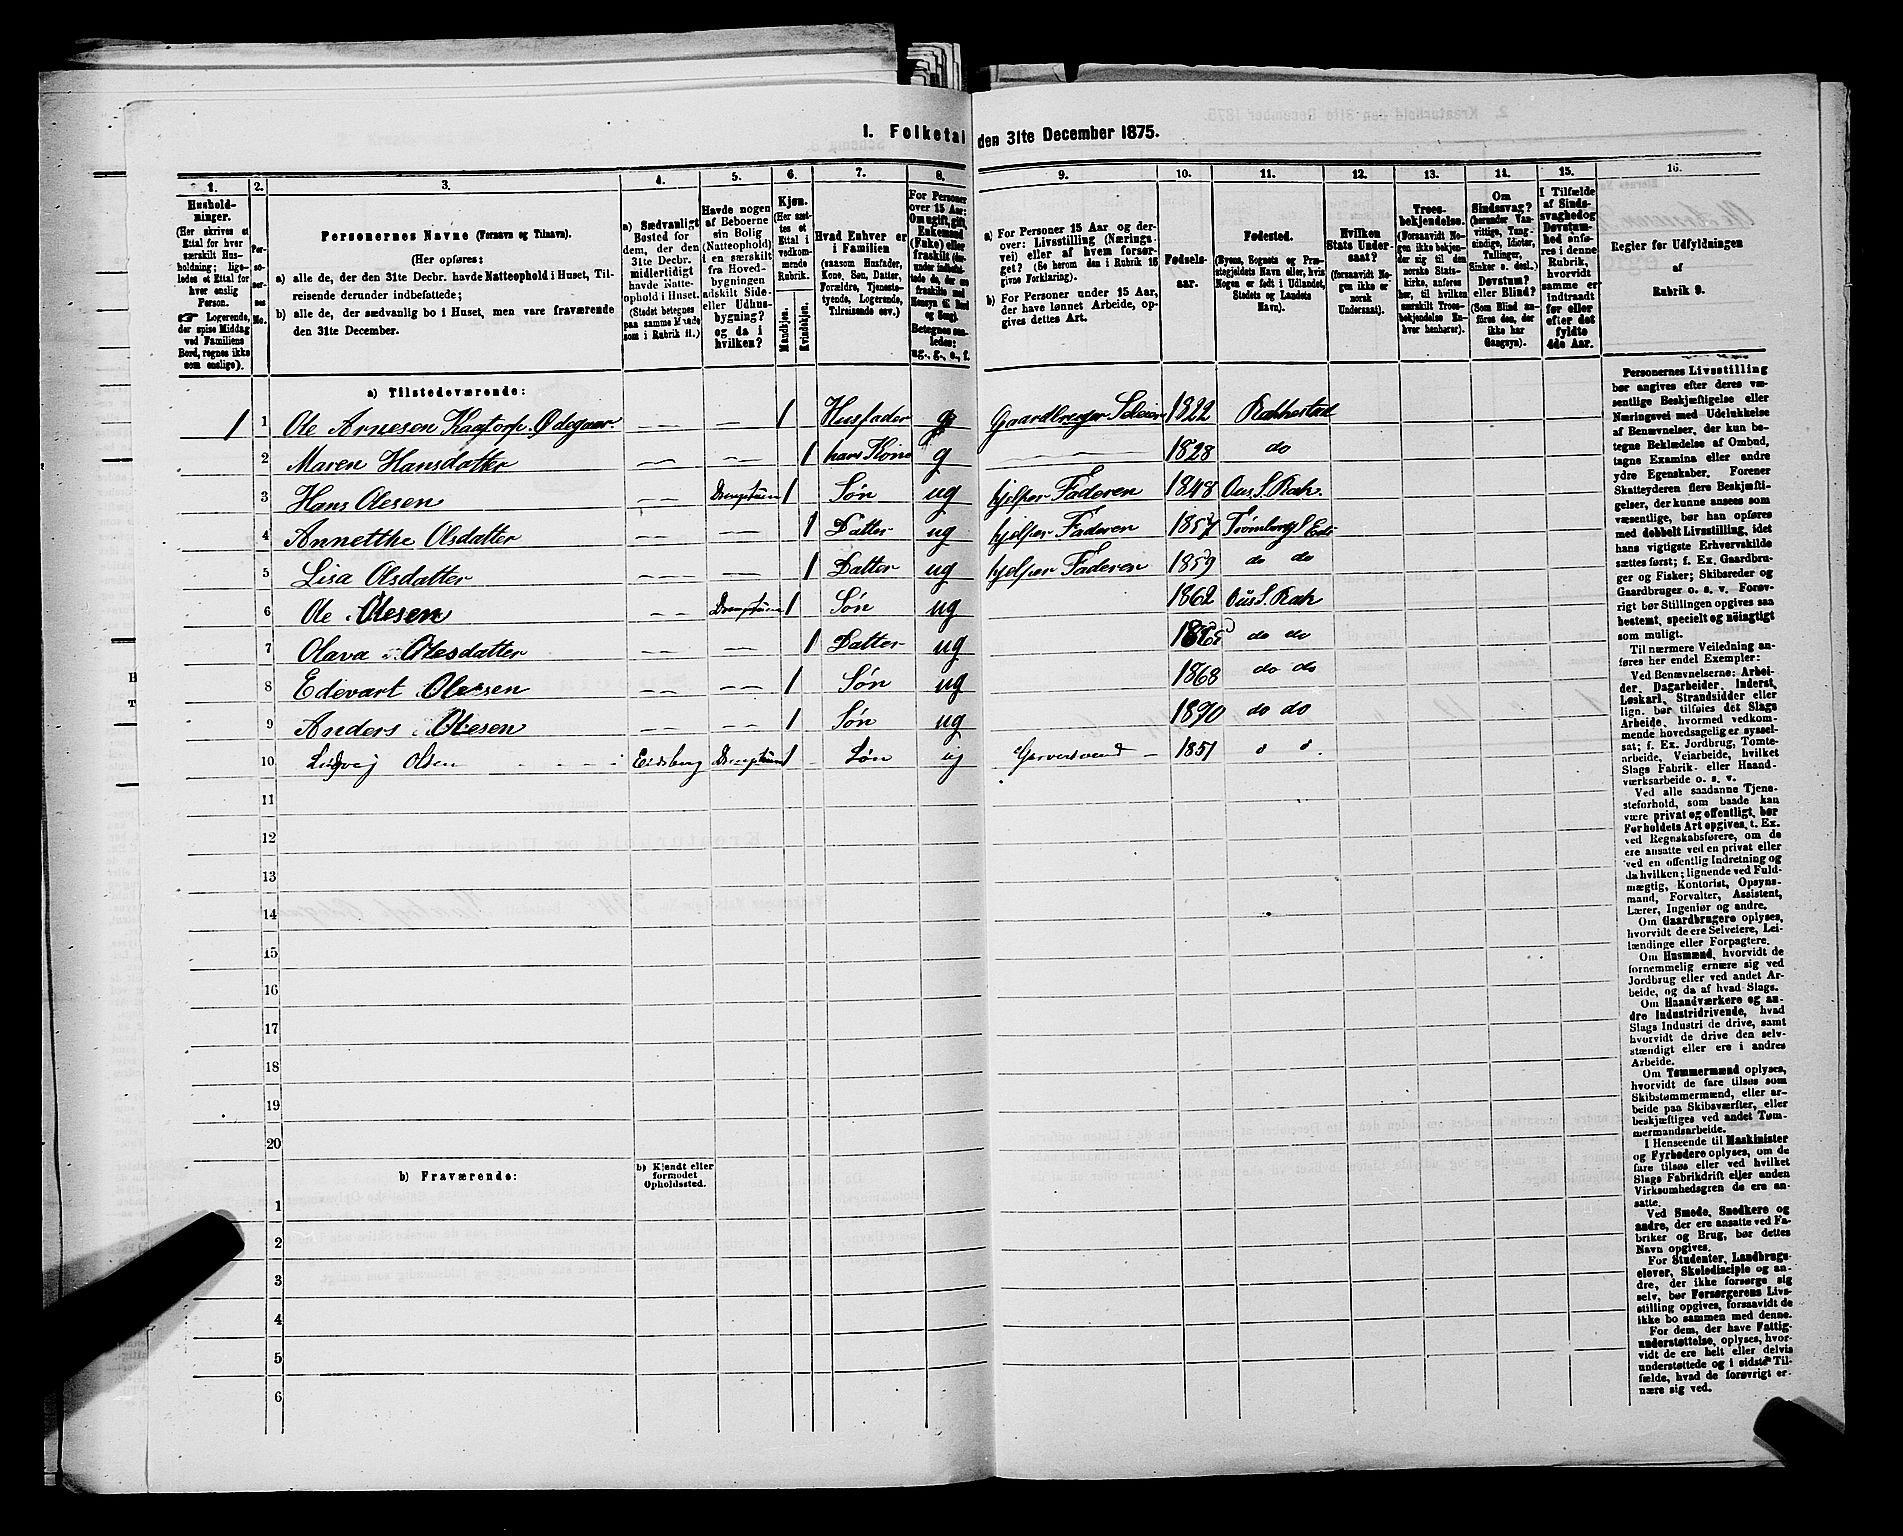 1. Folketal den 31te December 1875.
1. 2. 3. 4. 5. 6. 7. 8. 9. 10. 11. 12. 13. 14. 15. 16.
Husholdninger.
(Her skrives et
Ettal for hver
særskilt Husholdning; ligeledes
et Ettal for
hver enslig
Person.
☞ Logerende,
der spise Middag
ved Familiens
Bord, regnes ikke
som enslige).
Personernes No.
Personernes Navne (Fornavn og Tilnavn).
(Her opføres:
a) alle de, der den 31te Decbr. havde Natteophold i Huset, Tilreisende derunder indbefattede;
b) alle de, der sædvanlig bo i Huset, men vare fraværende
den 31te December.
a) Sædvanligt
Bosted for
dem, der den
31te Decbr.
midlertidigt
havde Natteophold i Huset.
(Stedet betegnes
paa samme Maade
som i Rubrik 11.)
Havde nogen
af Beboerne
sin Bolig
(Natteophold)
i en særskilt
fra Hovedbygningen
adskilt Side- eller Udhusbygning?
og da i
hvilken?
Kjøn.
(Her sættes et
Ettal i
vedkommende
Rubrik.
Mandkjøn.
Kvindekjøn.
Hvad Enhver er
i Familien
(saasom Husfader,
Kone, Søn, Datter,
Forældre, Tjenestetyende, Logerende,
Tilreisende osv.)
For Personer
over 15 Aar:
Om ugift, gift,
Enkemand
(Enke) eller
fraskilt
Betegnes saaledes:
ug., g., e., f.
a) For Personer 15 Aar og derover: Livsstilling (Næringsvei) eller af hvem forsørget? (Se herom den i Rubrik 16
givne Forklaring).
b) For Personer under 15 Aar,
der have lønnet Arbeide, opgives dettes Art.
Fødselsaar.
Fødested.
(Byens, Sognets og Præstegjeldets Navn eller, hvis
Nogen er født i Udlandet,
Stedets og Landets
Navn).
Hvilken
Stats Undersaat?
(forsaavidt Nogen ikke er
norsk
Undersaat).
Troesbekjendelse.
(Forsaavidt Nogen ikke bekjender sig til den
norske Statskirke, anføres
her, til hvilken
særskilt Troesbekjendelse Enhver henhører).
Om
Sindssvag?
(herunder Vanvittige, Tungsindige, Idioter,
Tullinger,
Sinker o. desl.)
Døvstum?
eller Blind?
(Som Blind anføres den, der
ikke har
Gangsyn).
I Tilfælde
af Sindssvaghed og
Døvstumhed anføres i denne
Rubrik,
hvorvidt
samme er
indtraadt
før eller
efter det
fyldte
4de Aar.
Regler for Udfyldningen
af
Rubrik 9.
a) Tilstedeværende:
1 1 Ole Arnesen Kaatorp Ødegaar 1 Husfader g Gaardbruger Seleier 1822 Rakkestad
2 Maren Hansdatter 1 hans Kone g 1828 do
3 Hans Olesen 1 Søn ug hjelper Faderen 1848 Ous S. Rak.
4 Annetthe Olsdatter 1 Datter ug hjelper Faderen 1857 Trømborg S. Eds
5 Lisa Olsdatter 1 Datter ug hjelper Faderen 1859 do do
6 Ole Olesen 1 Søn ug 1862 Ous S. Rak
7 Olava Olesdatter 1 Datter ug 1865 do do
8 Edevart Olesen 1 Søn ug 1868 do do
9 Anders Olesen 1 Søn ug 1870 do do
10 Ludvig Olsen Eidsberg 1 Søn ug Garversvend 1851
11
12
13
14
15
16
17
18
19
20
b) Fraværende:
b) Kjendt eller
formodet
Opholdssted.
1
2
3
4
5
6
Personernes Livsstilling
bør angives efter deres væsentlige Beskjæftigelse eller
Næringsvei med Udelukkelse
af Benævnelser, der kun betegne Beklædelse af Ombud,
tagne Examina eller andre
ydre Egenskaber. Forener
Skatteyderen flere Beskjæftigelser, der kunne ansees som
væsentlige, bør han opføres
med dobbelt Livsstilling, idet
hans vigtigste Erhvervskilde
sættes først; f. Ex. Gaardbruger og Fisker; Skibsreder og
Gaardbruger o. s. v. Forøvrigt bør Stillingen opgives saa
bestemt, specielt og nøiagtigt
som muligt.
Til nærmere Veiledning anføres her endel Exempler:
Ved Benævnelserne: Arbeider, Dagarbeider, Inderst,
Løskarl, Strandsidder eller
lign. bør tilføies det Slags
Arbeide, hvormed vedkommende hovedsagelig er sysselsat; f. Ex. Jordbrug, Tomtearbeide, Veiarbeide, hvilket
Slags Fabrik- eller Haandværksarbeide o. s. v.
Ved alle saadanne Tjenesteforhold, som baade kan
være privat og offentligt, bør
Forholdets Art opgives, t. Ex.
ved Regnskabsførere, om de
ere ansatte ved en privat eller
ved en offentlig Indretning og
da hvilken; lignende ved Fuldmægtig, Kontorist, Opsynsmand, Forvalter, Assistent,
Lærer, Ingeniør og andre.
Om Gaardbrugere oplyses,
hvorvidt de ere Selveiere, Leilændinge eller Forpagtere.
Om Husmænd, hvorvidt de
fornemmelig ernære sig ved
Jordbrug eller ved andet Arbeide, og da af hvad Slags.
Om Haandværkere og andre Industridrivende, hvad
Slags Industri de drive, samt
hvorvidt de drive den selvstændigt eller ere i andres
Arbeide.
Om Tømmermænd oplyses,
hvorvidt de fare tilsøs som
Skibstømmermænd, eller arbeide paa Skibsværfter, eller
beskjæftiges ved andet Tømmermandsarbeide.
I Henseende til Maskinister
og Fyrbødere oplyses, om de
fare tilsøs eller ved hvilket
Slags Fabrikdrift eller anden
Virksomhedsgren de ere ansatte.
Ved Smede, Snedkere og
andre, der ere ansatte ved Fabriker og Brug, bør dettes
Navn opgives.
For Studenter, Landbrugselever, Skoledisciple og andre, der ikke forsørge sig
selv, bør Forsørgerens Livsstilling opgives, forsaavidt de
ikke bo sammen med denne.
For dem, der have Fattigunderstøttelse, oplyses, hvorvidt de ere helt eller delvis
understøttede og i sidste Tilfælde, hvad de forøvrigt ernære sig ved.